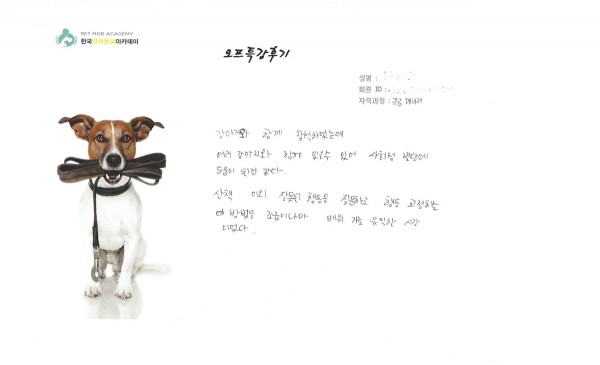 PET MGR ACADEMY
한국반려동물아카데미
오프특강후기
성명 :
회원 ID :
자격과정 :
강아지와 함께 참석하였는데
여러 강아지와 함께 있을수 있어 사회성 발달에
도움이 된것 같다.
산책 이외 잘못된 행동을 질문하고 행동 교정하는
방법을 조금이나마 배워 가는 유익한 시간
이었다.